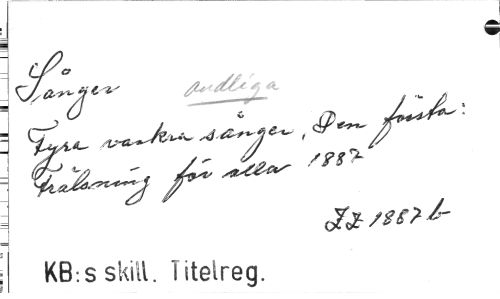 Sånger andliga
Fyra vackra sånger. Den första:
Frälsning för alla 1887
ZZ 1887 b
KB:s skill. Titelreg.